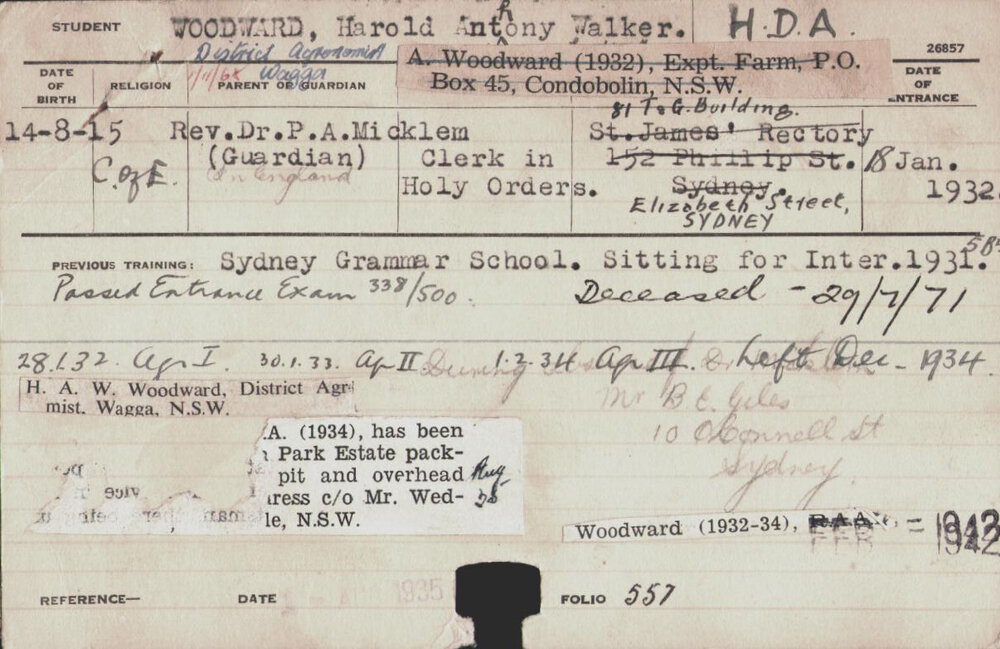 STUDENT WOODWARD, Harold Anthony Walker. H.D.A.
District Agronomist
Wagga
A. Woodward (1932), Expt. Farm, P.O.
Box 45, Condobolin, N.S.W.
26857
DATE OF BIRTH
RELIGION
PARENT OR GUARDIAN
DATE OF ENTRANCE
81 T&G. Building.
14-8-15 Rev.Dr.P.A.Micklem St.James' Rectory
(Guardian) Clerk in 152 Phillip St. 18 Jan.
C. of E. In England Holy Orders. Sydney. 1932
Elizabeth Street,
SYDNEY
PREVIOUS TRAINING: Sydney Grammar School. Sitting for Inter.1931.
Passed Entrance Exam 338/500. Deceased - 29/7/71
28.1.32. Agr I. 30.1.33. Ag II 1.2.34 Ag III. Left Dec. 1934.
During
Mr B E. Giles
10 O'Connell St
Sydney
H. A. W. Woodward, District Agr
mist. Wagga, N.S.W.
.A. (1934), has been
Park Estate pack-
pit and overhead Aug
ress c/o Mr. Wed- 38
le, N.S.W.
Woodward (1932-34), R.A.A. = 1942
FEB 1942
REFERENCE— DATE 1935 FOLIO 557